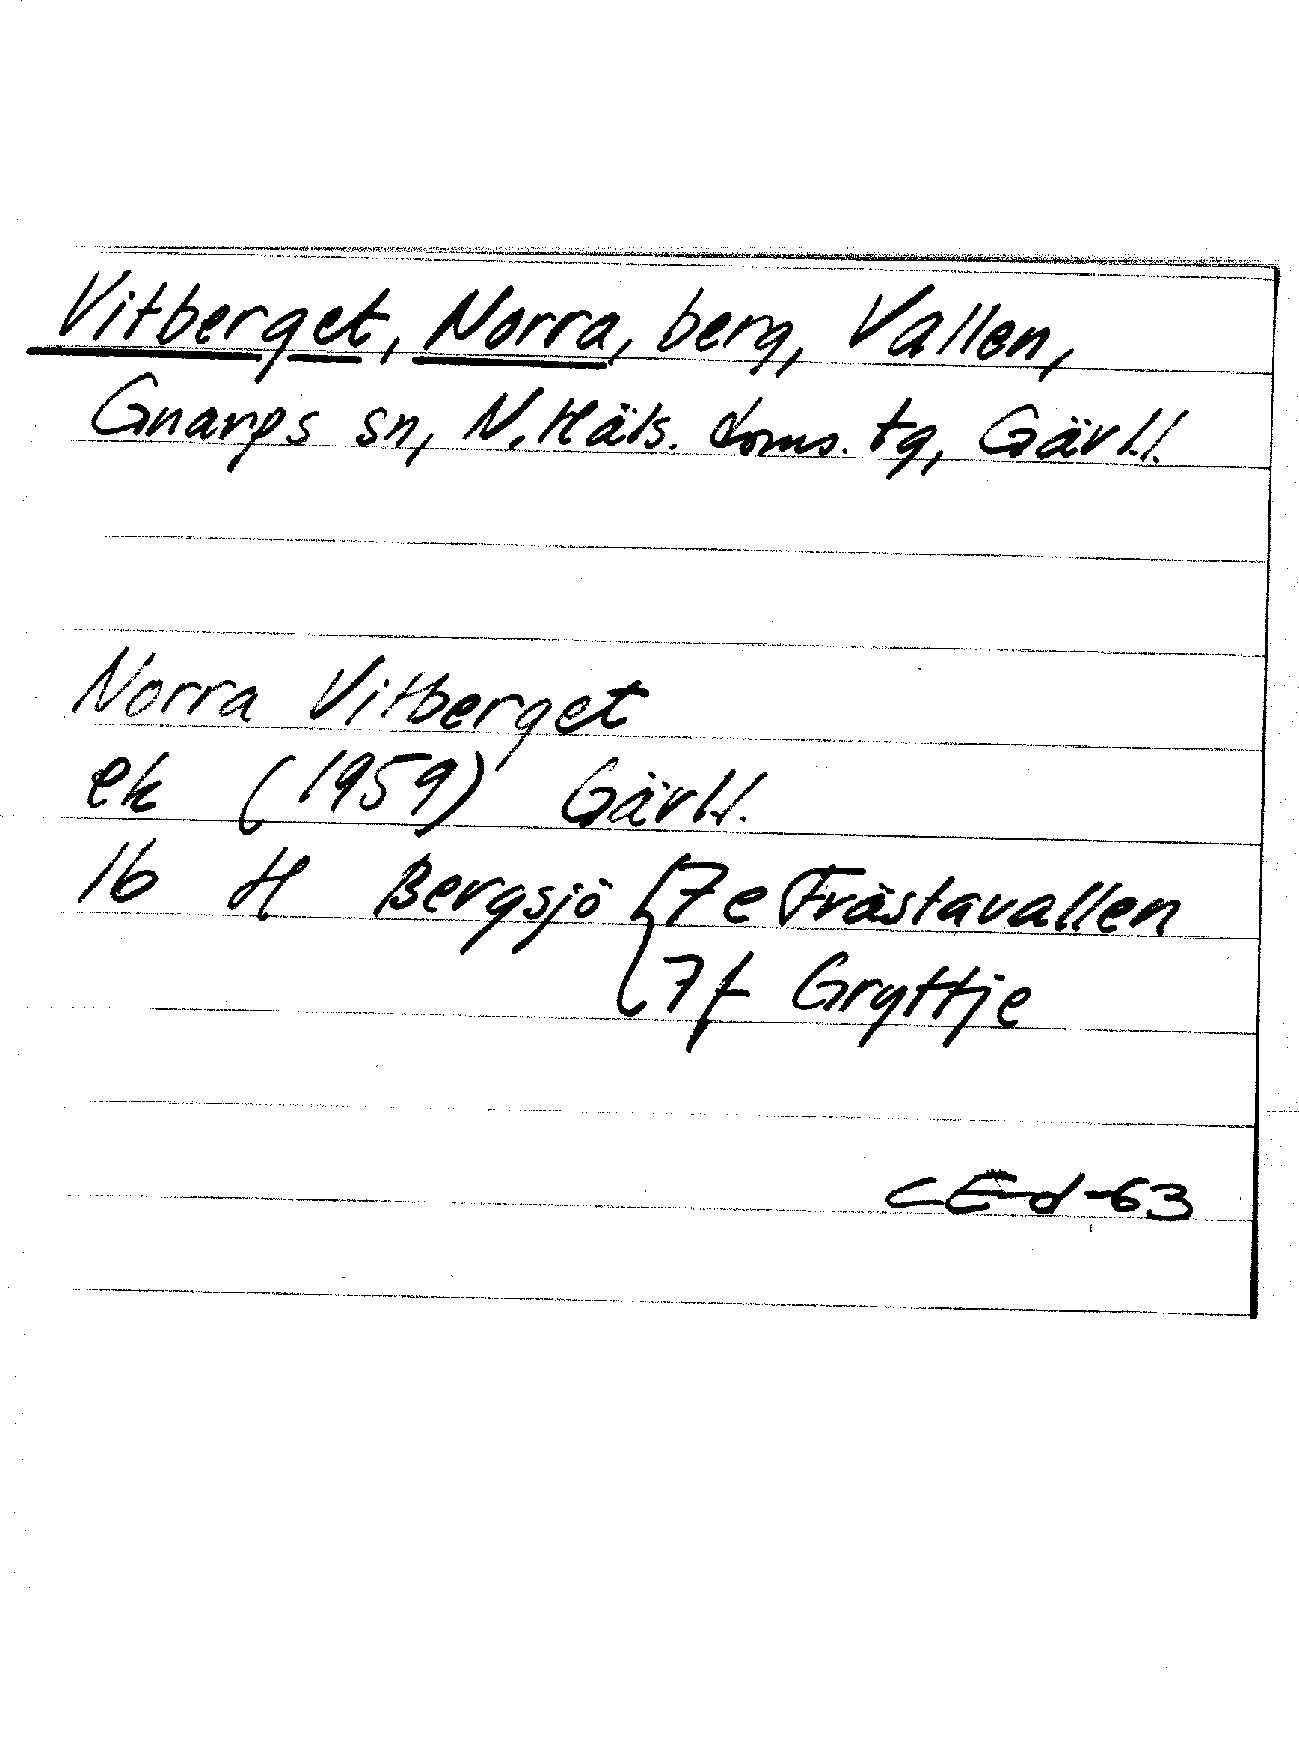 Vitberget, Norra, berg, Vallen,
Gnarps sn, N. Häls. doms. tg, Gävl.l.
Norra Vitberget
ek (1959) Gävl.l.
16 H Bergsjö { 7e Frästavallen
7f Gryttje
CEd -63